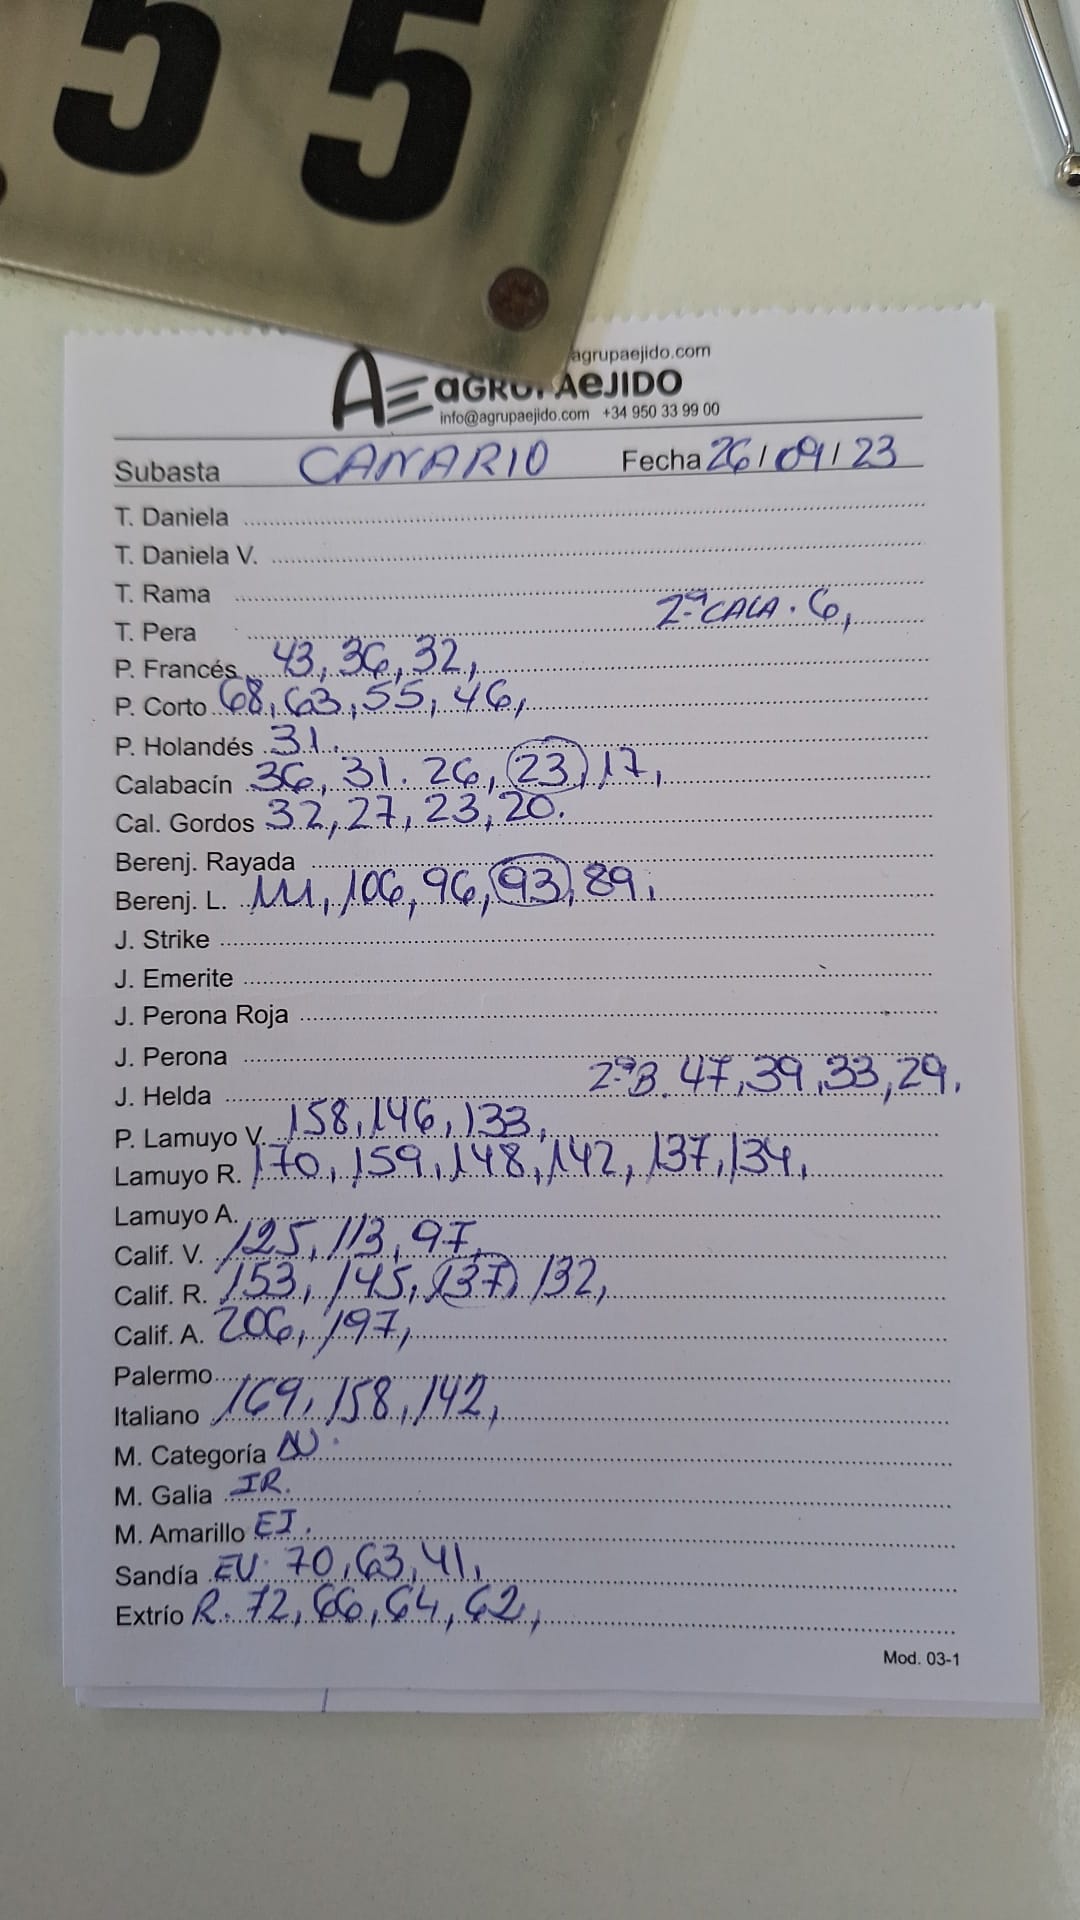 55
agrupaejido.com
AE aGRUPAeJIDO
info@agrupaejido.com +34 950 33 99 00
Subasta CANARIO Fecha 26/09/23
T. Daniela
T. Daniela V.
T. Rama
T. Pera 2ª CALA. 6,
P. Francés 43, 36, 32,
P. Corto 68, 63, 55, 46,
P. Holandés 31.
Calabacín 36, 31. 26, 23, 17,
Cal. Gordos 32, 27, 23, 20.
Berenj. Rayada
Berenj. L. 111, 106, 96, 93, 89.
J. Strike
J. Emerite
J. Perona Roja
J. Perona
J. Helda 2ªB. 47, 39, 33, 29.
P. Lamuyo V. 158, 146, 133,
Lamuyo R. 170, 159, 148, 142, 137, 134,
Lamuyo A.
Calif. V. 125, 113, 97,
Calif. R. 153, 145, 137, 132,
Calif. A. 206, 197,
Palermo
Italiano 169, 158, 142,
M. Categoría
M. Galia IR.
M. Amarillo EJ.
Sandía EU. 70, 63, 41,
Extrío R. 72, 66, 64, 62,
Mod. 03-1